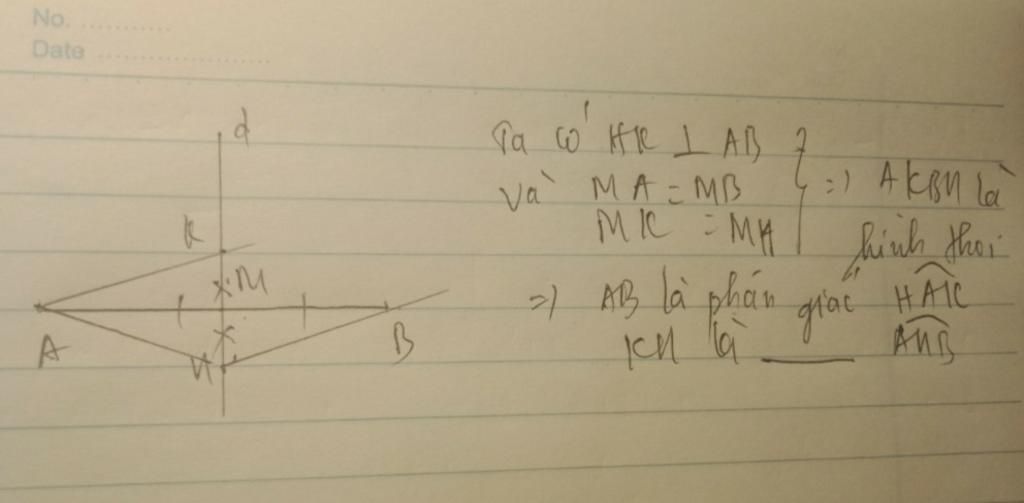 No. ...........
Date ......................
d
K
M
A
H
B
Ta có HK ⊥ AB
và MA = MB
MK = MH
=> AKBH là
hình thoi
=> AB là phân giác HAK
KH là ——— AHB